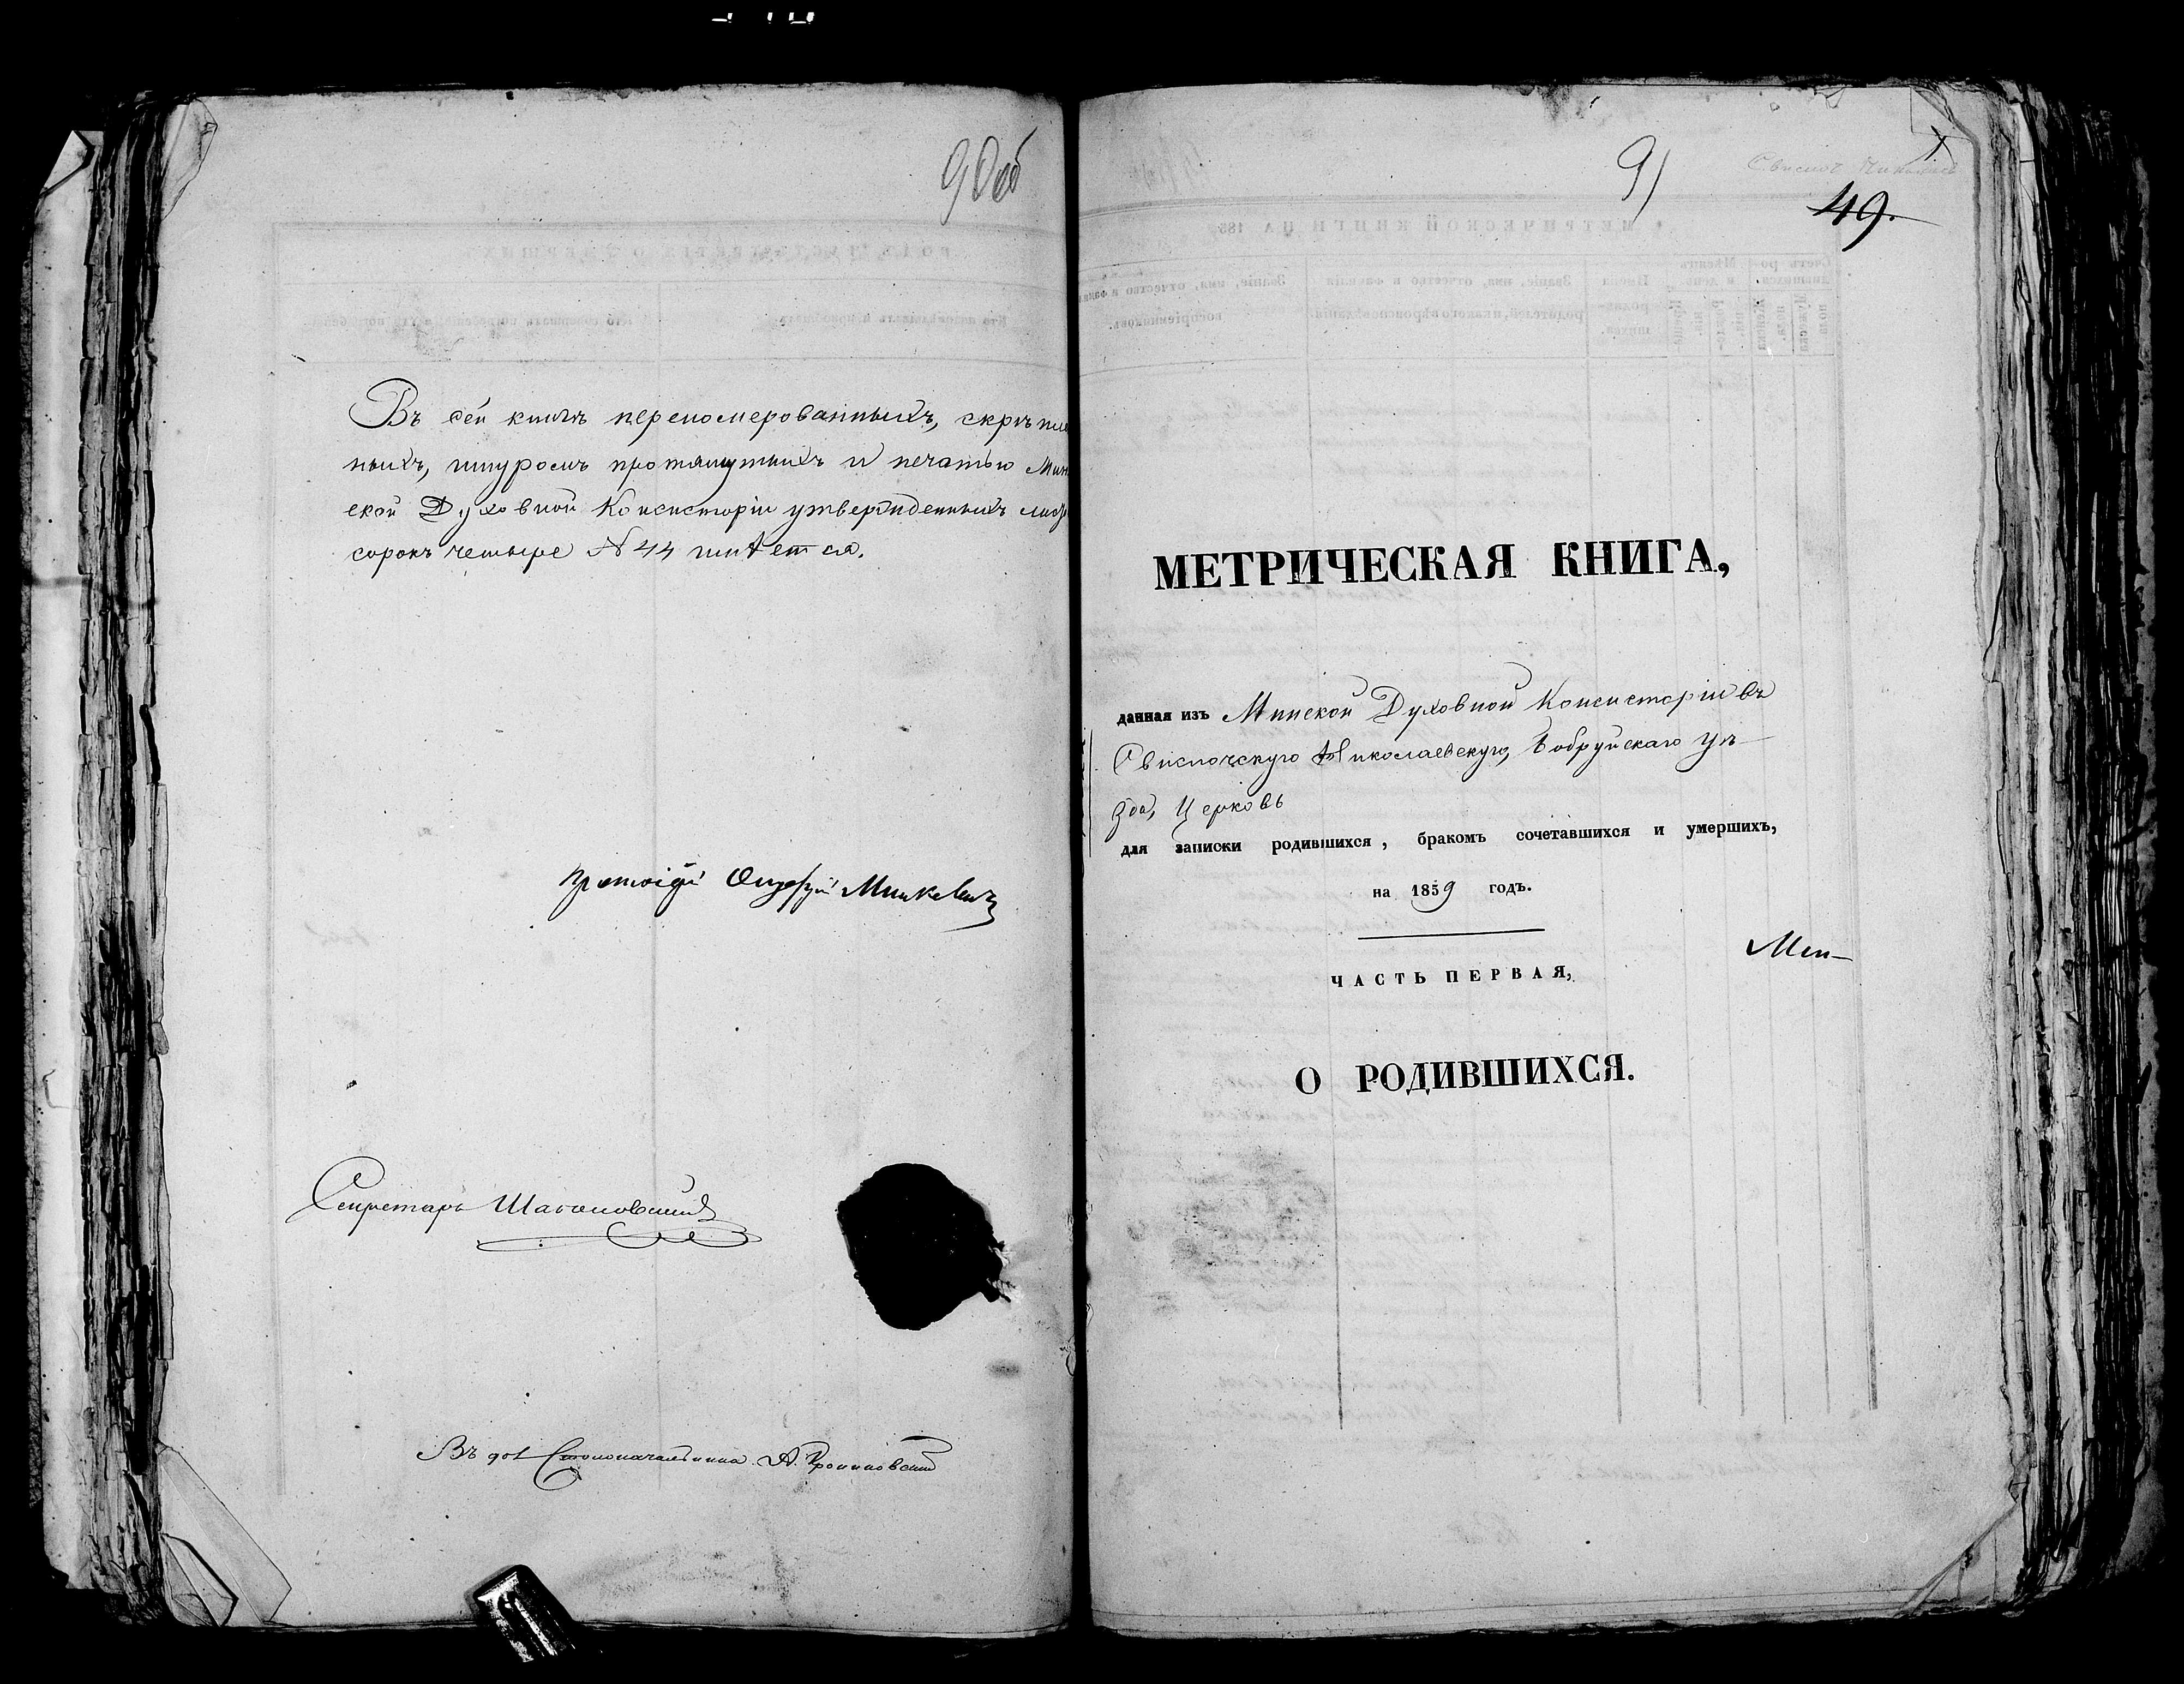 90об
Въ сей книгѣ перено­мерованныхъ, скрѣпле
ныхъ, шнуромъ протянутыхъ и печатью Мин
ской Духовной Консисторіи утвержденныхъ лист
сорокъ четыре № 44 имѣется.
Протоіерей Минкевичъ
Секретарь
Въ дол. Столоначальника А.
91
Свислоч Николаев
1
49.
МЕТРИЧЕСКАЯ КНИГА,
данная изъ Минской Духовной Консисторіи въ
Свислочскую Николаевскую, Бобруйскаго уѣ-
зда, Церковь
для записки родившихся, бракомъ сочетавшихся и умершихъ,
на 1859 годъ.
Мин-
ЧАСТЬ ПЕРВАЯ,
О РОДИВШИХСЯ.